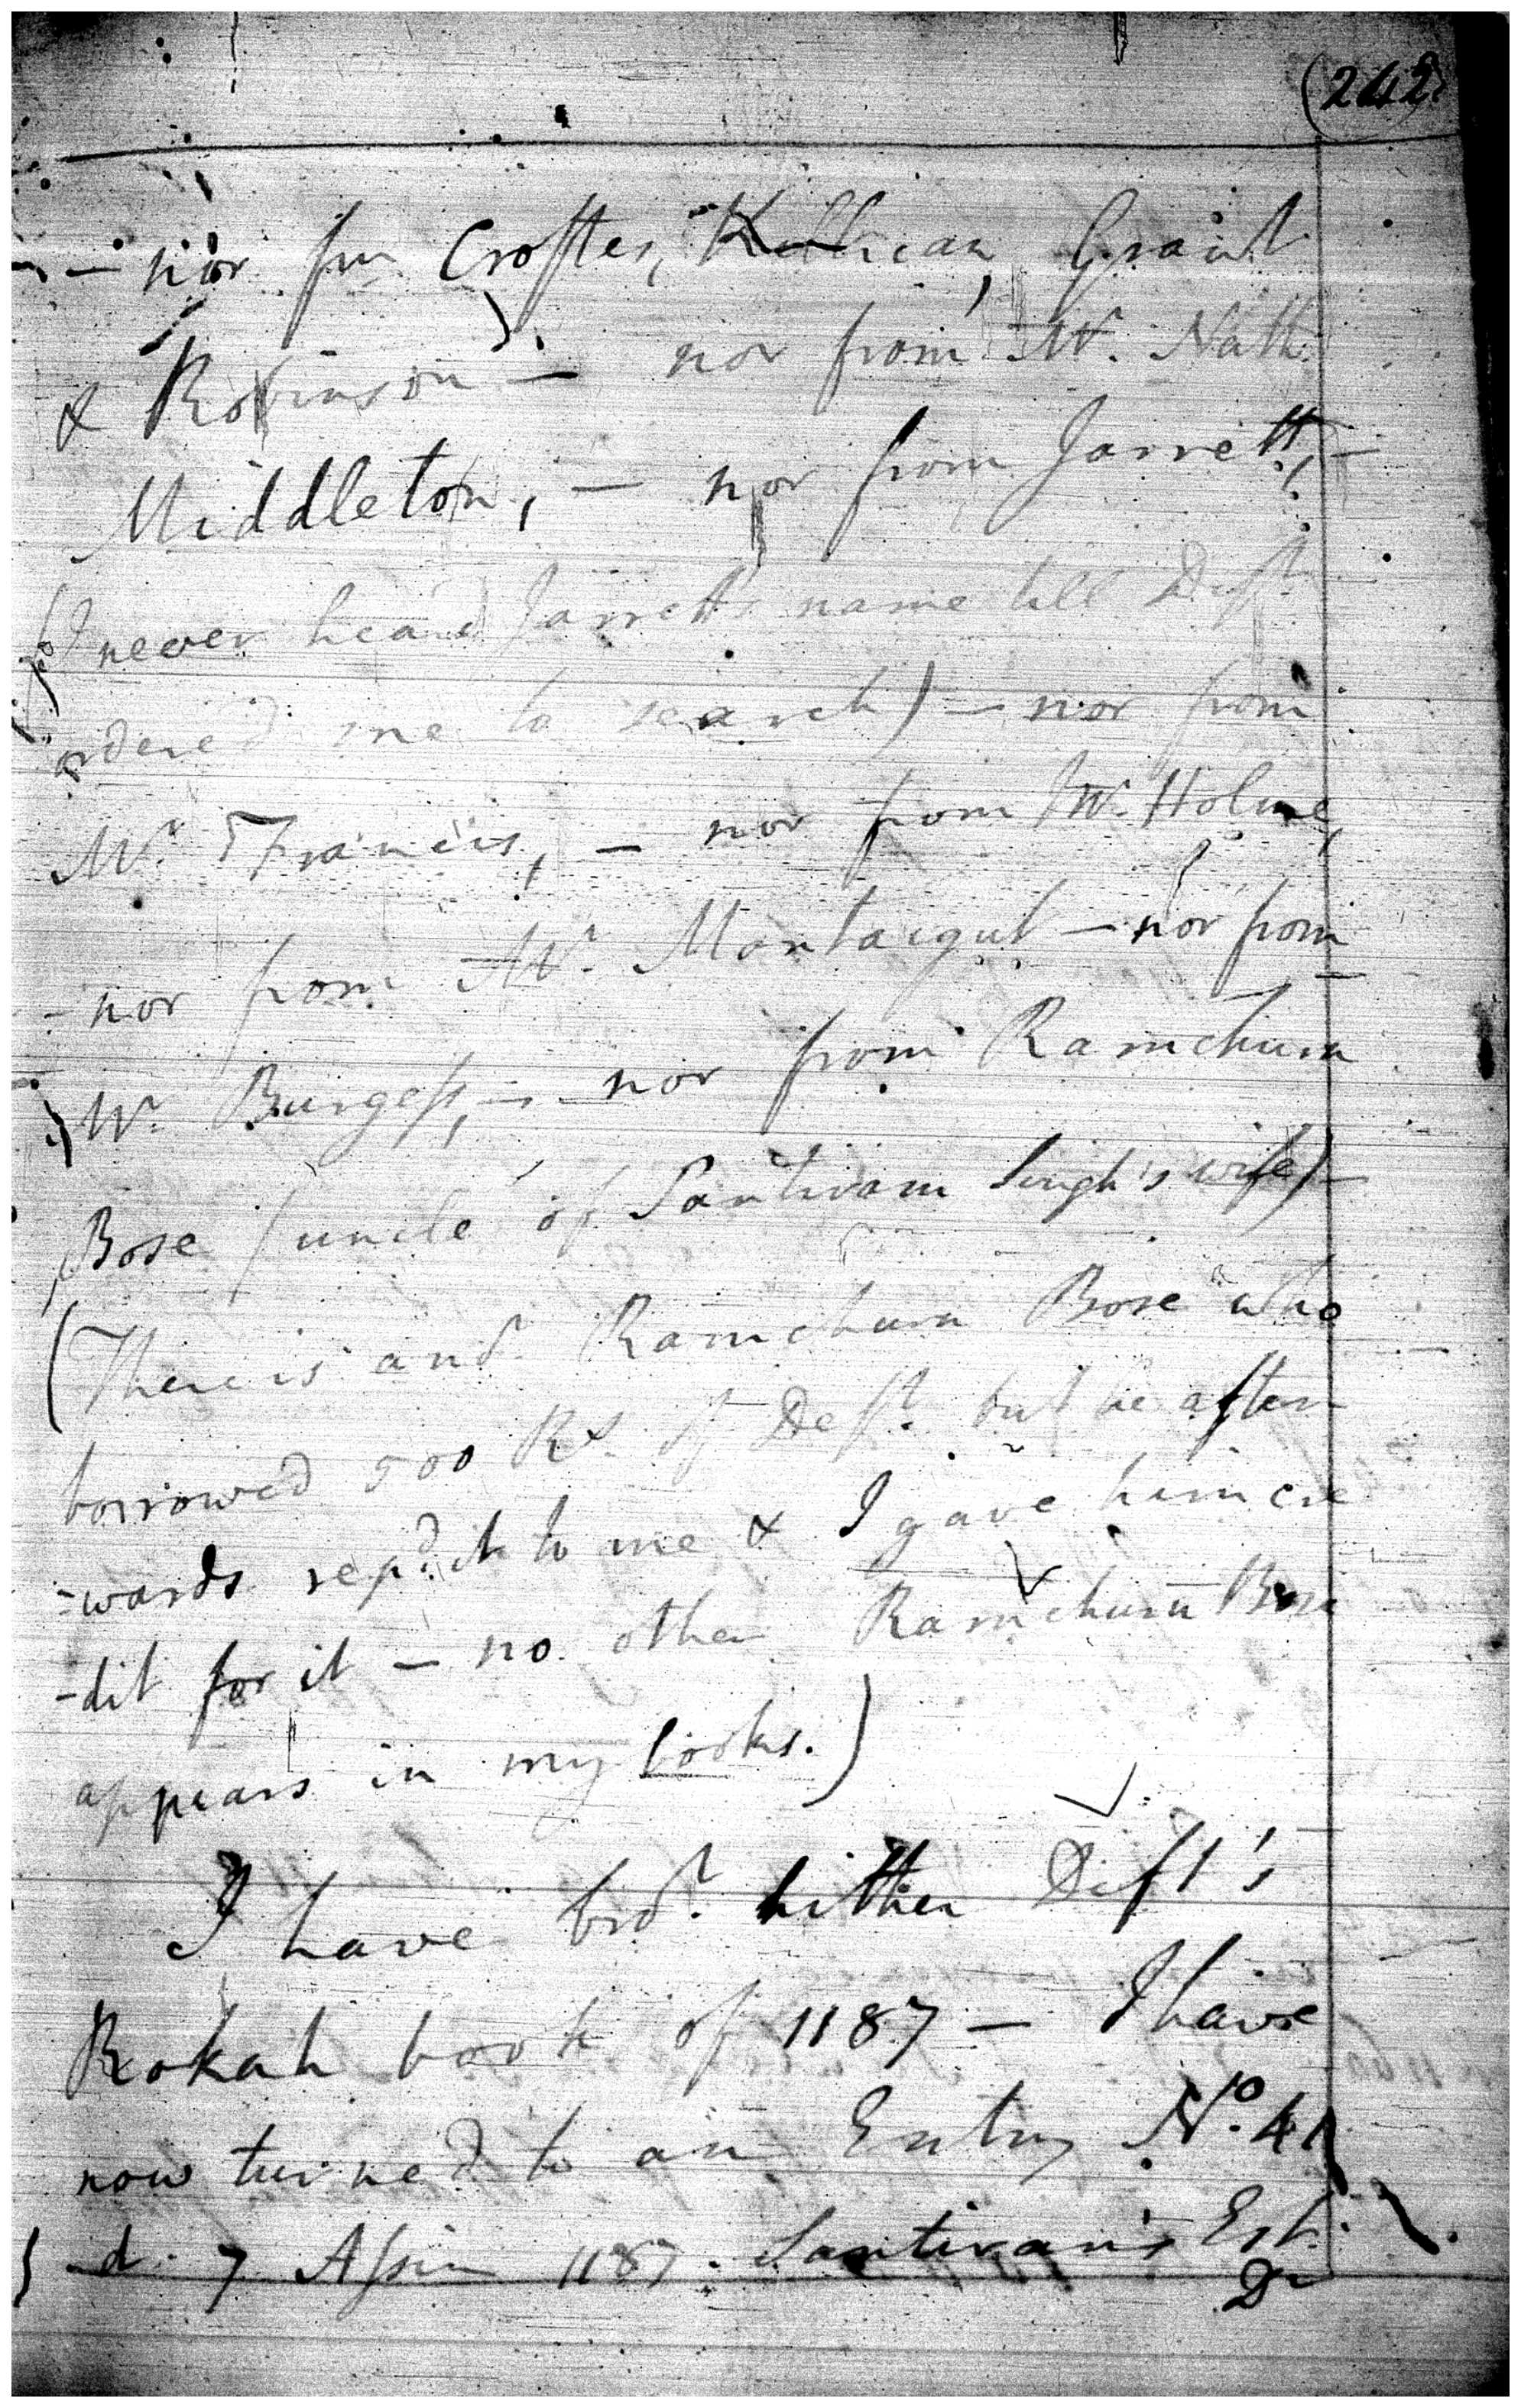 (242)
- nor fm Croftes, Killican, Grant
& Robinson - nor from Mr. Nath.
Middleton, - nor from Jarrett, -
(I never heard Jarrett's name till Deft.
ordered me to search) - nor from
Mr. Francis, - nor from Mr. Holme,
- nor from Mr. Montaigut - nor from
Mr. Burgess, - nor from Ramchurn
Bose (uncle of Santiram Singh's wife) -
(There is anor. Ramchurn Bose who
borrowed 500 Rs. of Deft. but he after
-wards repd. it to me & I gave him cre
-dit for it - no other Ramchurn Bose
appears in my books.)
I have brot. hither Deft's
Rokah book of 1187 - I have
now turned to an Entry No. 41
d. 7 Assin 1187. Santiram's Est.
Dr